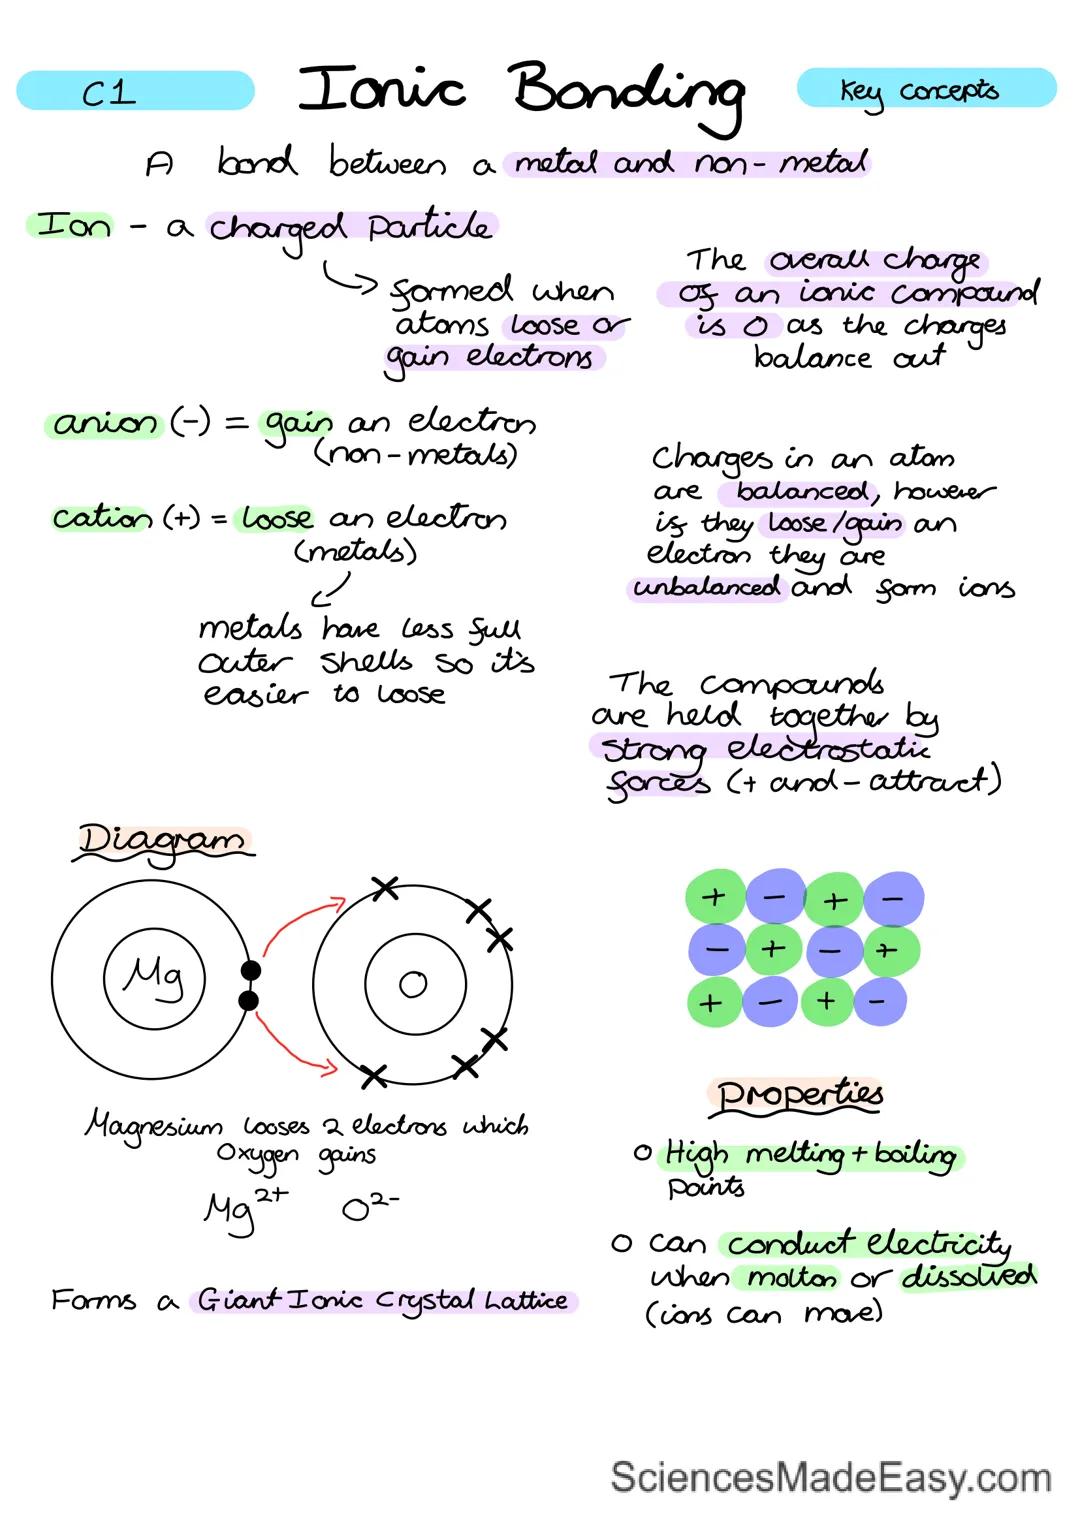 C1
Ionic Bonding
Key concepts
A bond between a metal and non-metal
Ion - a charged particle
formed when
atoms loose or
gain electrons
The overall charge
of an ionic compound
is 0 as the charges
balance out
anion (-) = gain an electron
(non-metals)
cation (+) = loose an electron
(metals)
metals have less full
outer shells so it's
easier to loose
Charges in an atom
are balanced, however
if they loose/gain an
electron they are
unbalanced and form ions
The compounds
are held together by
strong electrostatic
forces (+ and - attract)
Diagram
Mg
O
+ - + -
- + - +
+ - + -
Magnesium looses 2 electrons which
Oxygen gains
Mg²⁺ O²⁻
Forms a Giant Ionic Crystal Lattice
Properties
o High melting + boiling
points
o can conduct electricity
when molton or dissolved
(ions can move)
SciencesMadeEasy.com